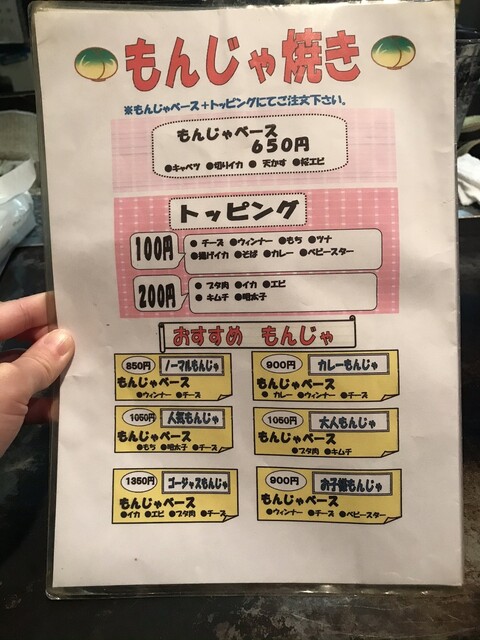 もんじゃ焼き
※もんじゃベース＋トッピングにてご注文下さい。
もんじゃベース
650円
●キャベツ ●切りイカ ● 天かす ●桜エビ
トッピング
100円
● チーズ ●ウィンナー ●もち ●ツナ
●揚げイカ ●そば ●カレー ●ベビースター
200円
● ブタ肉 ●イカ ●エビ
● キムチ ●明太子
おすすめ もんじゃ
850円 ノーマルもんじゃ
もんじゃベース
●ウィンナー ●チーズ
900円 カレーもんじゃ
もんじゃベース
● カレー ●ウィンナー ●チーズ
1050円 人気もんじゃ
もんじゃベース
●もち ●明太子 ●チーズ
1050円 大人もんじゃ
もんじゃベース
●ブタ肉 ●キムチ
1350円 ゴージャスもんじゃ
もんじゃベース
●イカ ●エビ ●ブタ肉 ●チーズ
900円 お子様もんじゃ
もんじゃベース
●ウィンナー ●チーズ ●ベビースター